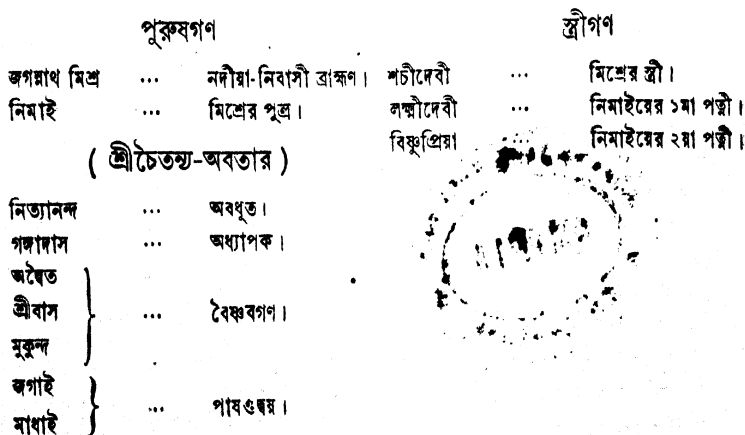 পুরুষগণ
জগন্নাথ মিশ্র ... নদীয়া-নিবাসী ব্রাহ্মণ।
নিমাই ... মিশ্রের পুত্র।
( শ্রীচৈতন্য-অবতার )
নিত্যানন্দ ... অবধূত।
গঙ্গাদাস ... অধ্যাপক।
অদ্বৈত
শ্রীবাস ... বৈষ্ণবগণ।
মুকুন্দ
জগাই
মাধাই ... পাষণ্ডদ্বয়।
স্ত্রীগণ
শচীদেবী ... মিশ্রের স্ত্রী।
লক্ষ্মীদেবী ... নিমাইয়ের ১মা পত্নী।
বিষ্ণুপ্রিয়া নিমাইয়ের ২য়া পত্নী।